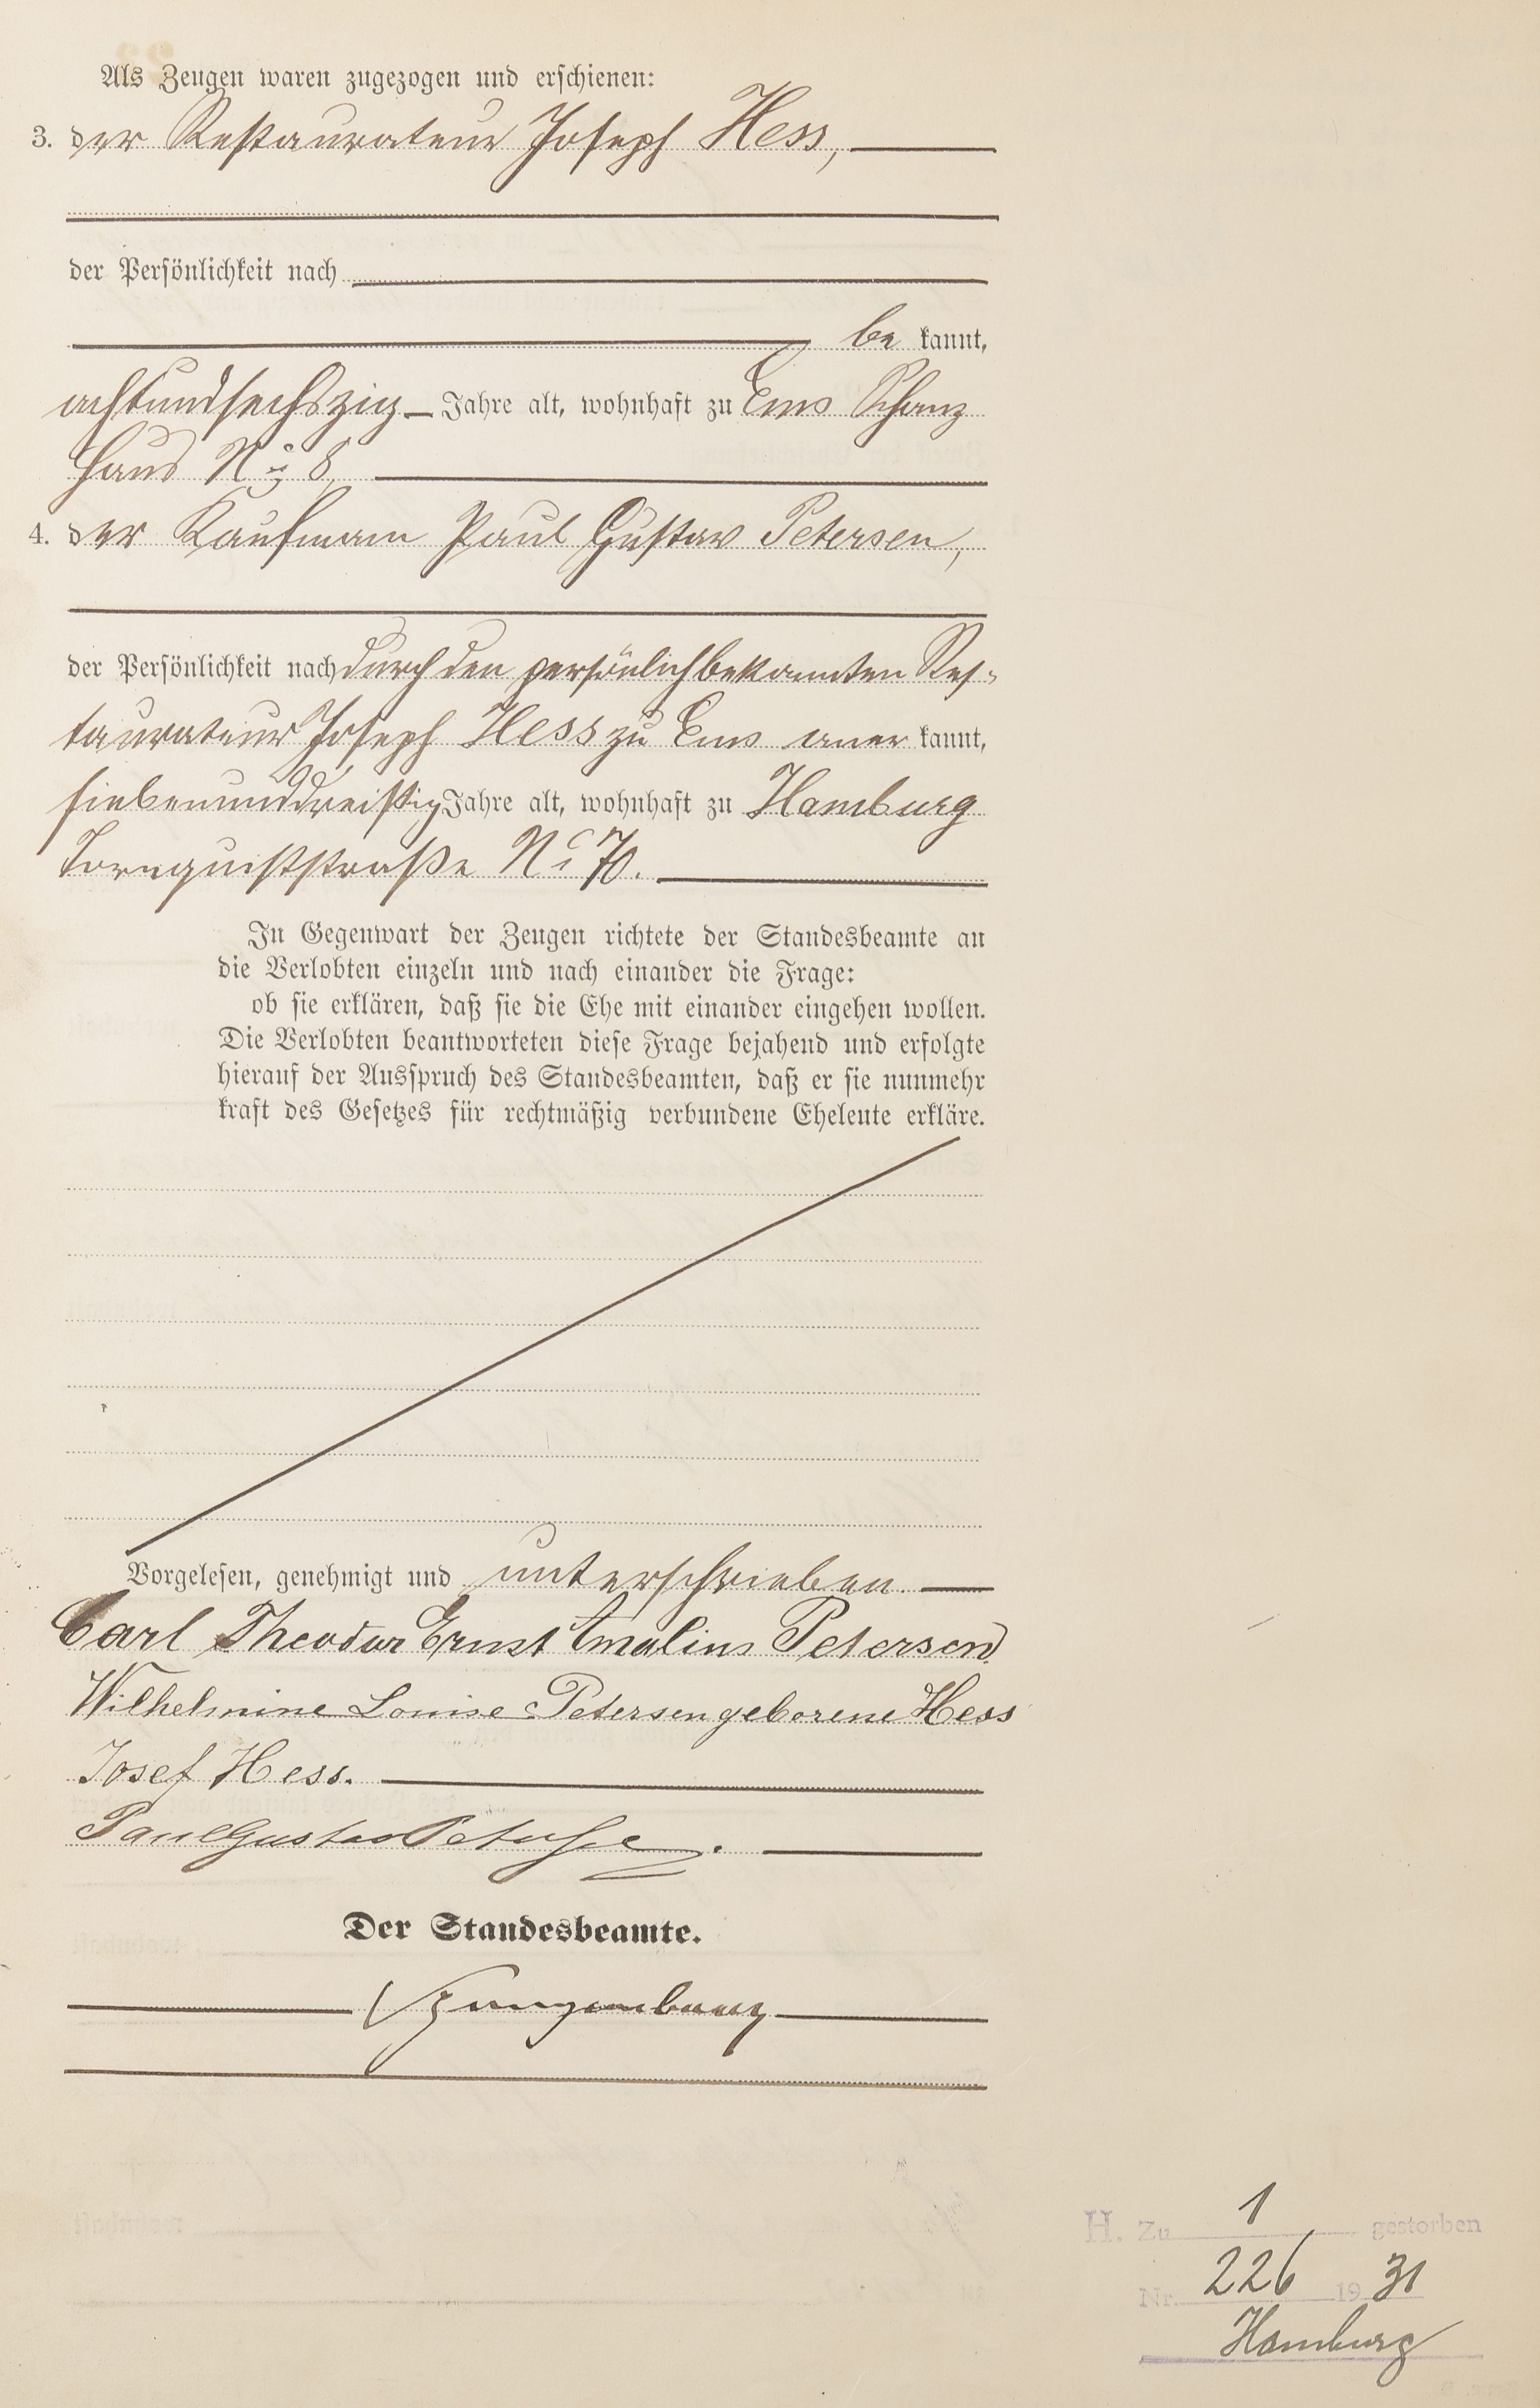 Als Zeugen waren zugezogen und erschienen:
3. der Restaurateur Joseph Hess,
der Persönlichkeit nach
be kannt,
achtundsechszig Jahre alt, wohnhaft zu Ems Schanz
Haus No 8,
4. der Kaufmann Paul Gustav Petersen,
der Persönlichkeit nach durch den persönlich bekannten Res-
taurateur Joseph Hess zu Ems aner kannt,
siebenunddreißig Jahre alt, wohnhaft zu Hamburg
Tornquiststraße No 70.
In Gegenwart der Zeugen richtete der Standesbeamte an
die Verlobten einzeln und nach einander die Frage:
ob sie erklären, daß sie die Ehe mit einander eingehen wollen.
Die Verlobten beantworteten diese Frage bejahend und erfolgte
hierauf der Ausspruch des Standesbeamten, daß er sie nunmehr
kraft des Gesetzes für rechtmäßig verbundene Eheleute erkläre.
Vorgelesen, genehmigt und unterschrieben.
Carl Theodor Ernst Amalius Petersen
Wilhelmine Louise Petersen geborene Hess
Josef Hess.
Paul Gustav Petersen.
Der Standesbeamte.
H. Zu 1 gestorben
Nr. 226 19 31
Hamburg